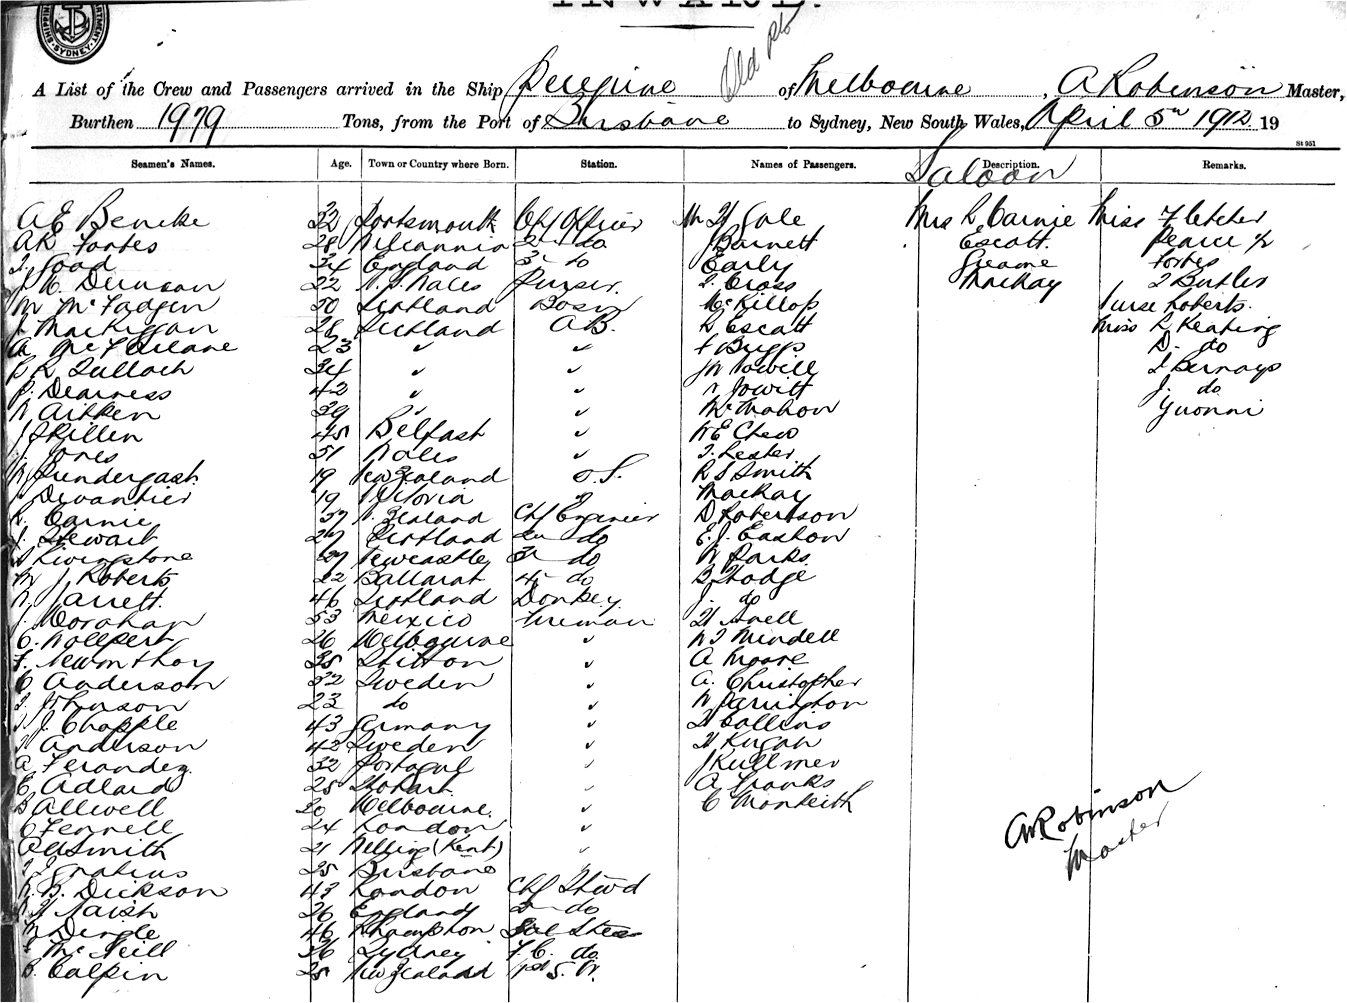 INWARD.
SHIPPING DEPARTMENT, SYDNEY
Old
A List of the Crew and Passengers arrived in the Ship Peregrine of Melbourne, A Robinson Master,
Burthen 1979 Tons, from the Port of Brisbane to Sydney, New South Wales, April 5th 1912 19
St 951
Seamen's Names. Age. Town or Country where Born. Station. Names of Passengers. Description. Remarks.
Saloon
A E Bencke 32 Portsmouth Chf Officer Mr H Gale Mrs R Carnie Miss Fletcher
A R Forbes 28 Wilcannia 2nd do Barnett Escott Pearce
Good 34 England 3rd do Early Graeme Forbes
Dennison 22 N.S. Wales Purser T. Cross Mackay T Butler
M McFadgen 50 Scotland Bosn McKillop Nurse Roberts
J. MacKinnon 28 Scotland A B. R Escott Miss R Keating
A McFarlane 23 " " F Biggs D. do
Tulloch 34 " " Jowitt I Bernays
P. Dearness 42 " " Jowitt J. do
W Aitken 39 " " McMahon Yvonni
J Skillen 45 Belfast " W E Chew
J. Jones 51 Wales " T. Lester
W Pendergast 19 New Zealand O.S. R S Smith
Devantier 19 Victoria " Mackay
R. Carnie 37 N. Zealand Chf Engineer D Robertson
J. Stewart 29 Scotland 2nd do E. J. Easton
D Livingstone 29 Newcastle 3rd do W Parks
W J Roberts 22 Ballarat 4th do B Hodge
W Jarrett 46 Scotland Donkey J. do
J. Monahan 53 Mexico Fireman H Snell
C. Wollpert 26 Melbourne " W T Mindell
F. Newonthoy 35 " A Moore
C Anderson 32 Sweden " A. Christopher
J. Johnson 23 do " W Parrington
T. J. Chapple 43 Germany " H Collins
H Anderson 42 Sweden " H Rugan
A Ferandez 32 Portugal " J Kullmer
C Adlard 25 Hobart " A Franks
B Allwell 20 Melbourne " C Monkeith
C Fennell 24 London "
A A Smith 21 Welling (Kent) "
Ignatius 25 Brisbane "
A Robinson
Master
W. B. Dickson 43 London Chf Stwd
W H Naish 26 England 2nd do
W Dingle 46 Rhampton
McNeill 36 Sydney F. C. do
B. Calpin 25 New Zealand 1st S. W.